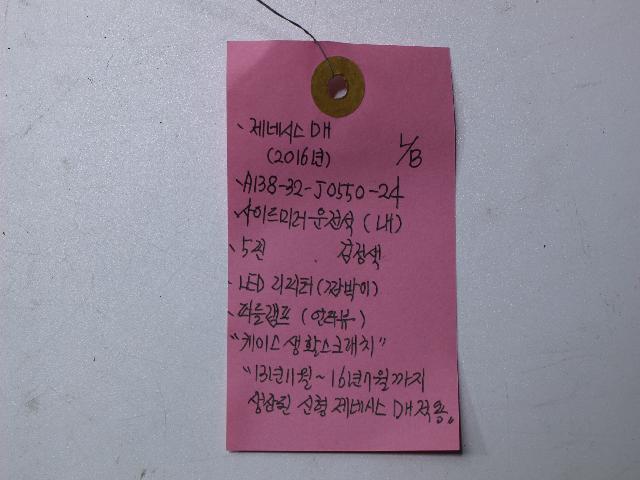 제네시스 DH
(2016년) L/B
A138-32-J0550-24
사이드미러 운전석 (내)
5핀 검정색
LED 리피터 (깜박이)
퍼들램프 (안라뷰)
"케이스 생활스크래치"
"13년 11월~16년 7월까지
생산된 신형 제네시스 DH 적용."